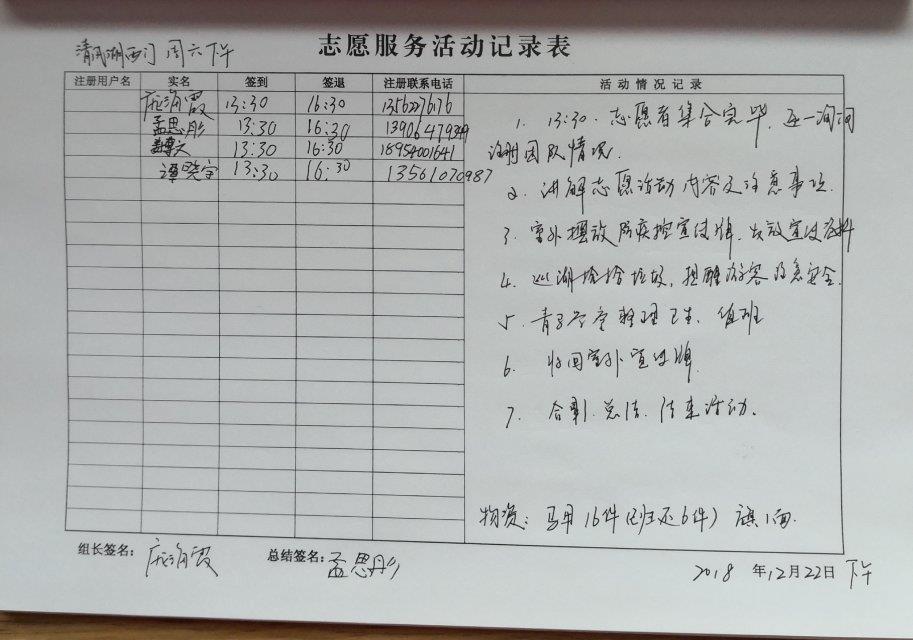 志愿服务活动记录表
清风湖西门 周六下午
注册用户名 实名 签到 签退 注册联系电话 活动情况记录
庞海霞 13:30 16:30 13562276176
孟思彤 13:30 16:30 13906479399
13:30 16:30 18954001641
谭晓宇 13:30 16:30 13561070987
1. 13:30. 志愿者集合完毕,逐一询问
注册团队情况.
2. 讲解志愿活动内容及注意事项.
3. 室外摆放 宣传牌、发放宣传资料
4. 巡湖捡拾垃圾,提醒游客注意安全.
5. 整理卫生、值班
6. 收回室外宣传牌.
7. 合影.总结.结束活动.
物资: 马甲16件(归还6件) 旗1面.
组长签名: 庞海霞 总结签名: 孟思彤
2018 年12月22日 下午